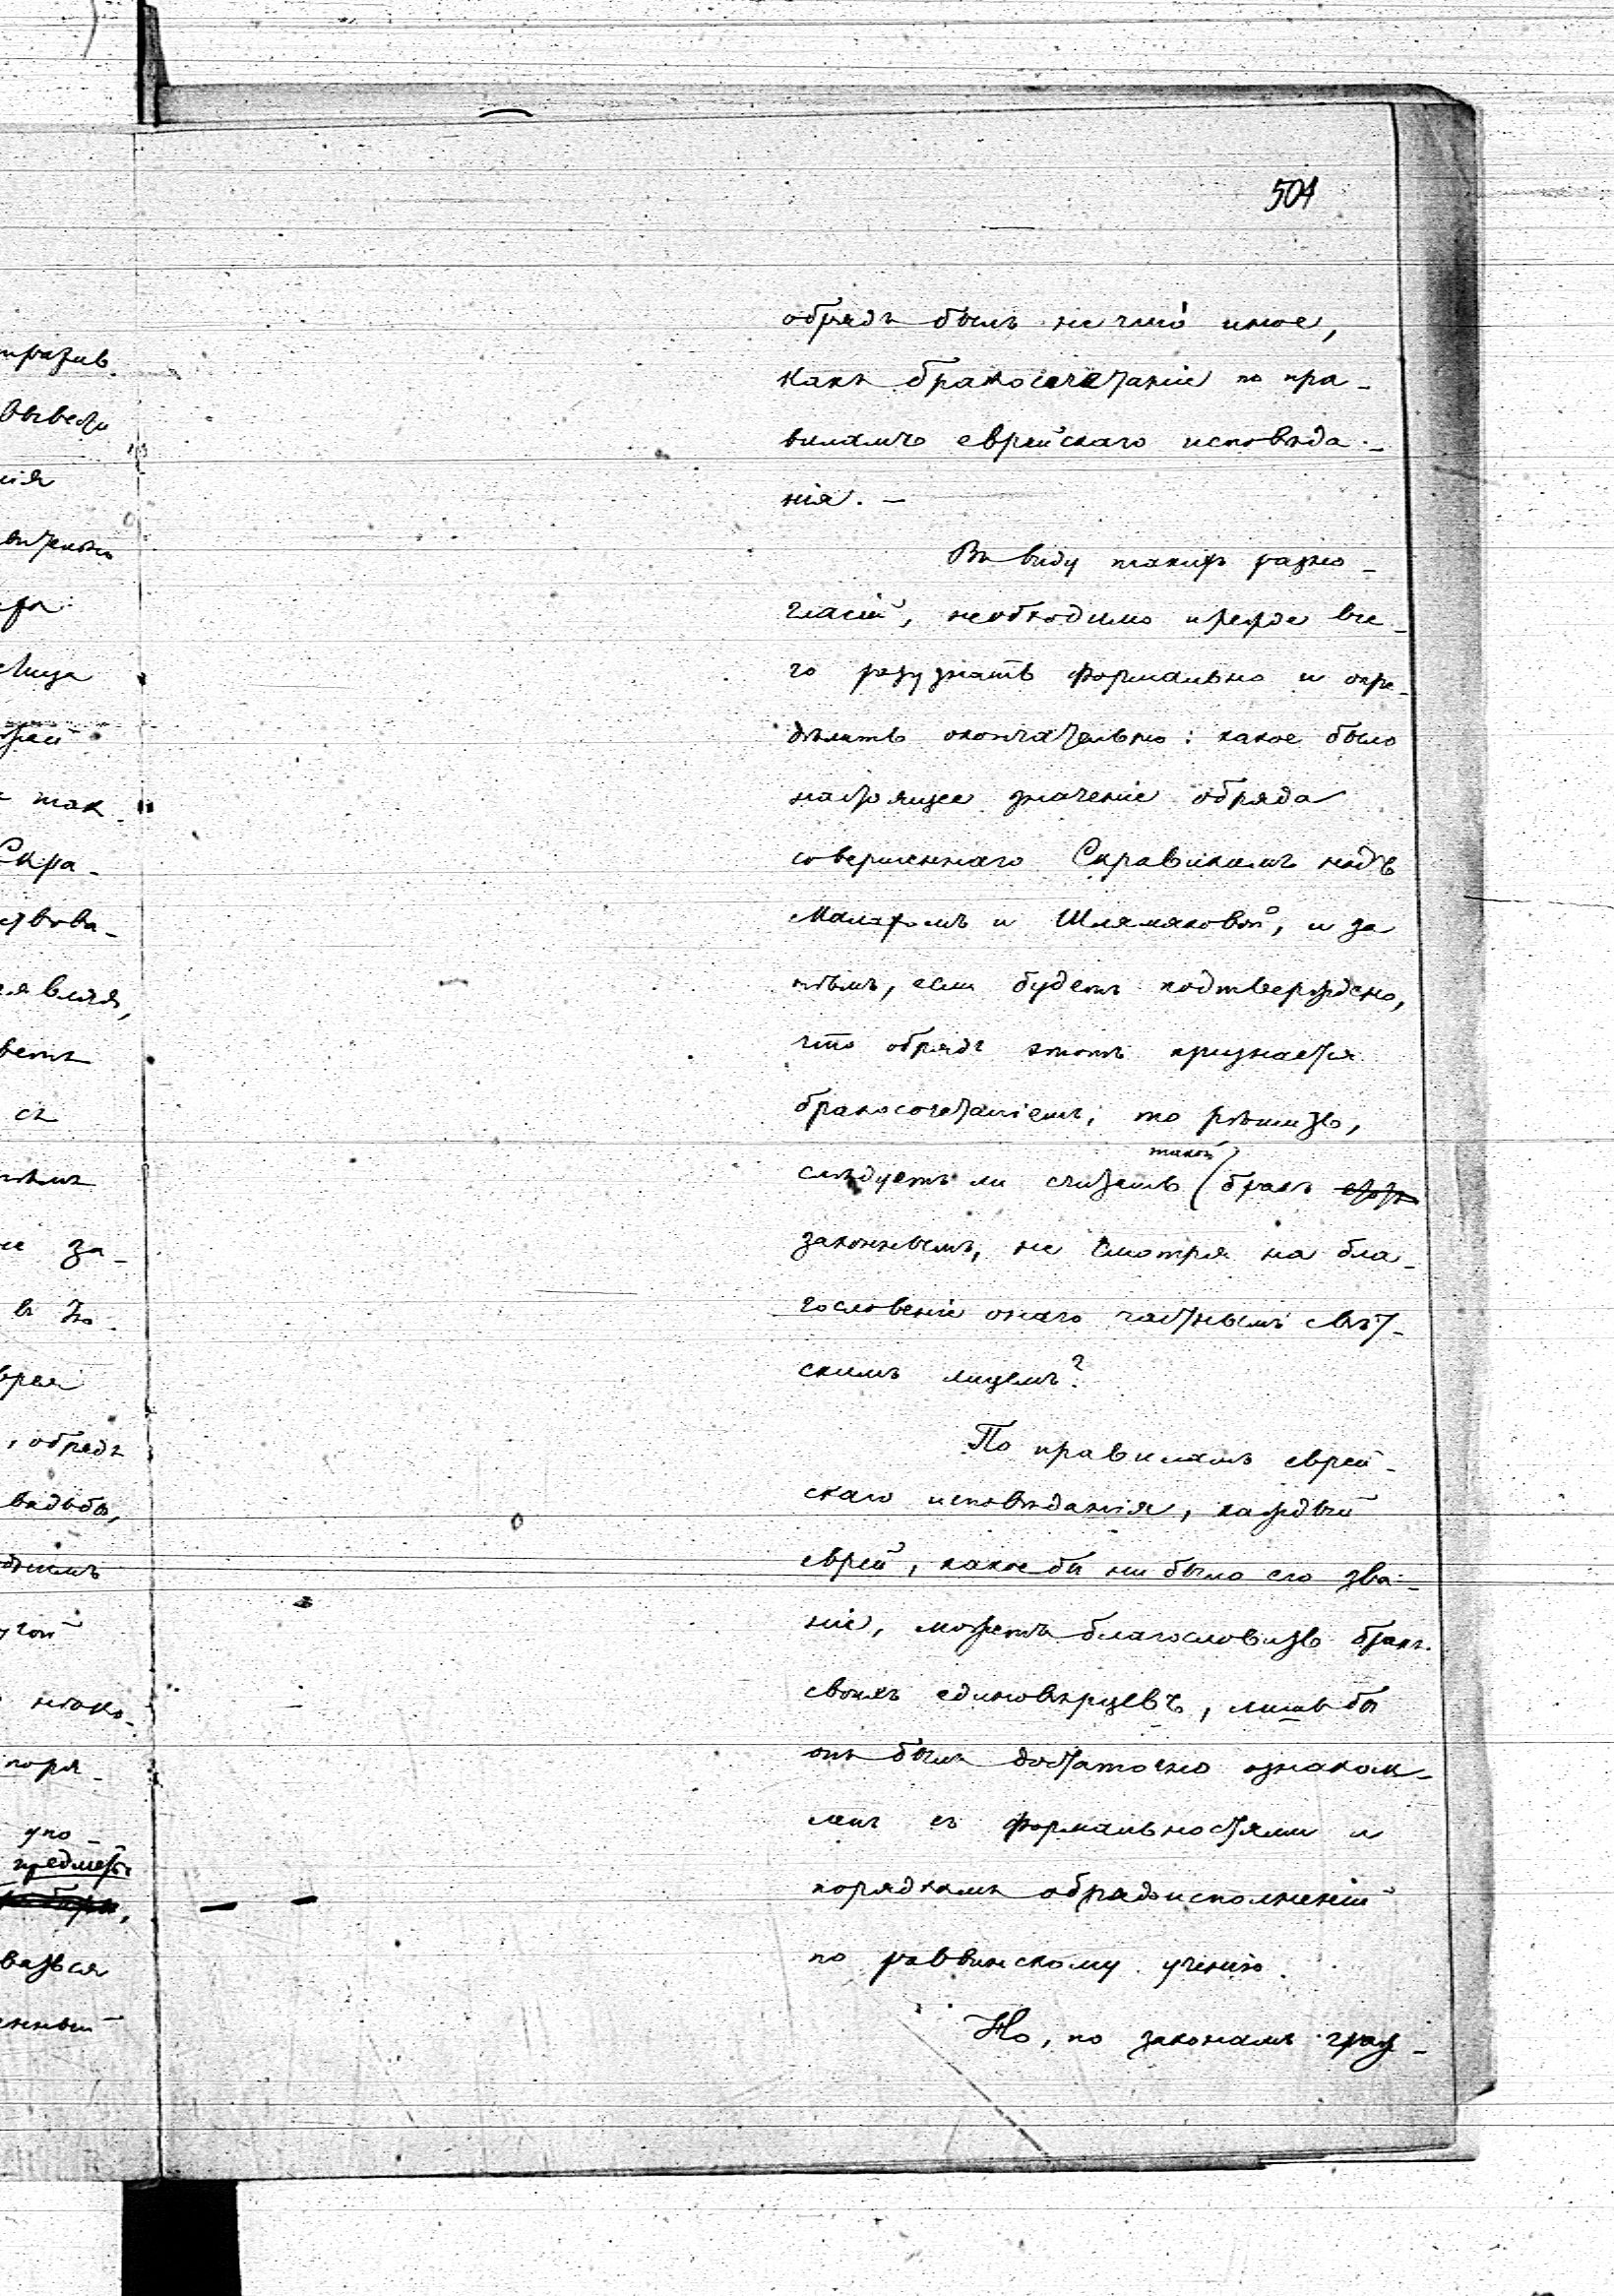 504
обрядъ былъ не что иное,
какъ бракосочетаніе по пра-
виламъ еврейскаго исповѣда-
нія. —
Въ виду такихъ разно-
гласій, необходимо прежде все-
го разузнать формально и опре-
дѣлить окончательно: какое было
настоящее значеніе обряда
совершеннаго Скравикимъ надъ
и Шлямяковой, и за
тѣмъ, если будетъ подтверждено,
что обрядъ этотъ признается
бракосочетаніемъ; то рѣшить,
такой
слѣдуетъ ли считать бракъ этотъ
законнымъ, не смотря на бла-
гословеніе онаго частнымъ свѣт-
скимъ лицемъ?
По правиламъ еврей-
скаго исповѣданія, каждый
еврей, какое бы ни было его зва-
ніе, можетъ благословить бракъ
своихъ единовѣрцевъ, лишь бы
онъ былъ достаточно ознаком-
ленъ съ формальностями и
порядкомъ обрядоисполненій
по раввинскому ученію.
Но, по законамъ граж-
вывели
нія
лица
так
Скра-
ствова-
являя,
съ
за-
обрядъ
свадьбы,
нѣко-
поря-
упо-
предметъ